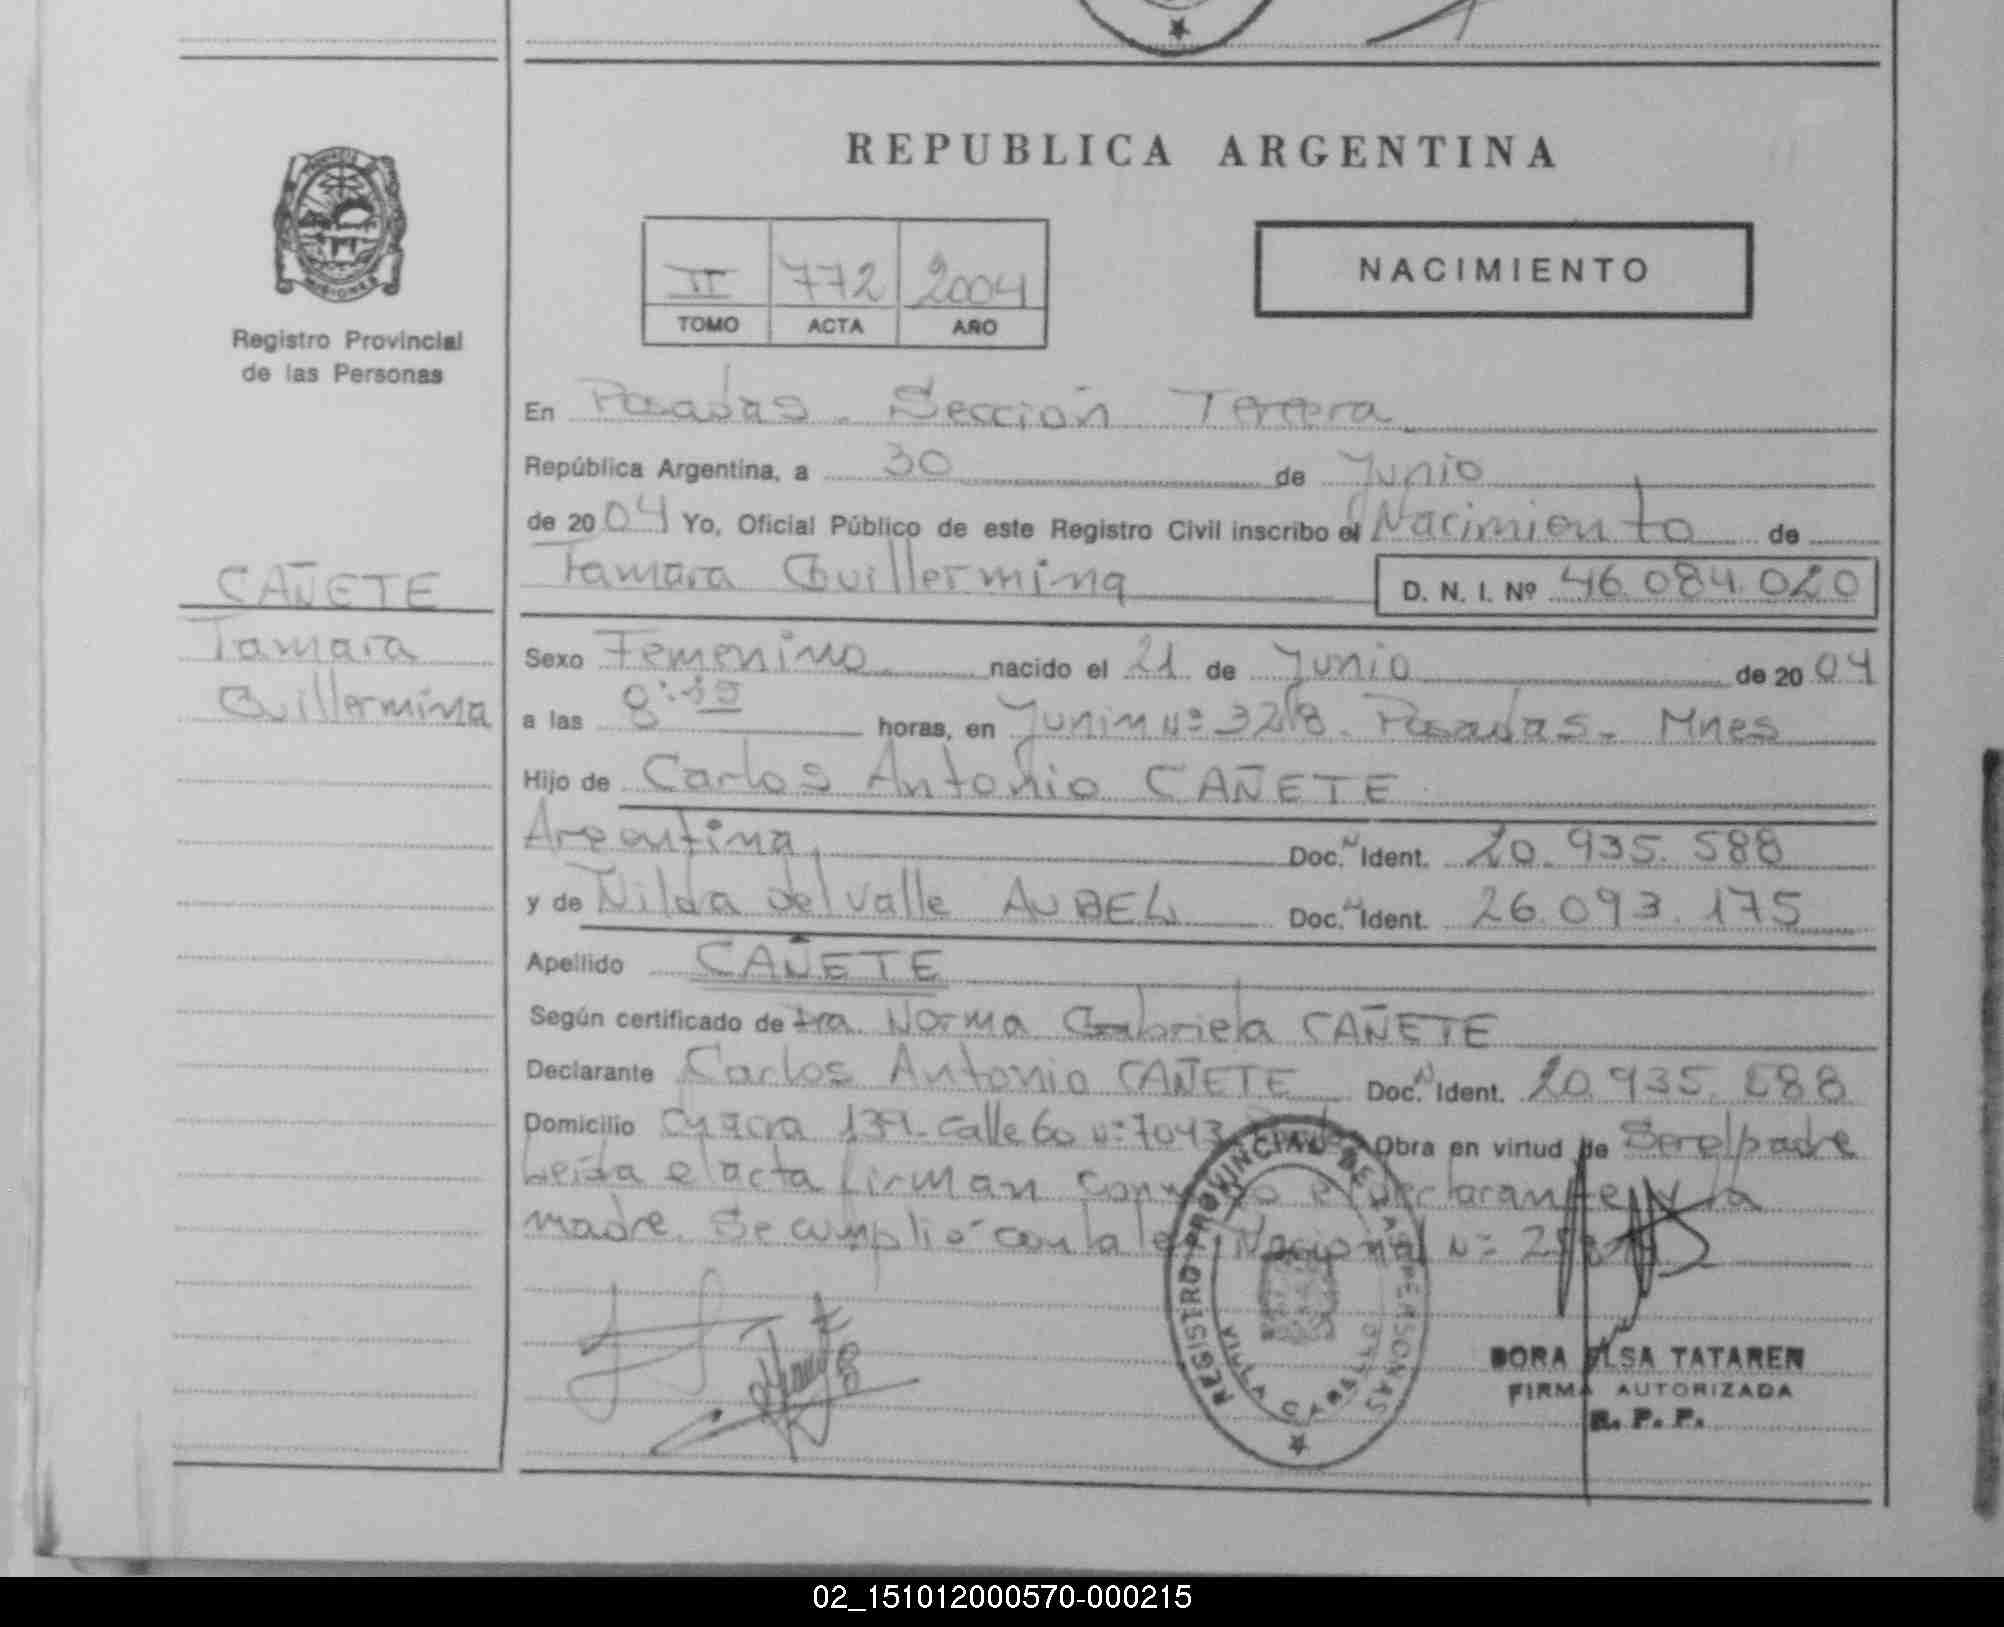 REPUBLICA ARGENTINA
NACIMIENTO
II 772 2004
TOMO ACTA AÑO
MISIONES
Registro Provincial
de las Personas
CAÑETE
Tamara
Guillermina
En Posadas - Sección Tercera
República Argentina, a 30 de Junio
de 2004 Yo, Oficial Público de este Registro Civil inscribo el Nacimiento de
Tamara Guillermina D. N. I. Nº 46.084.020
Sexo Femenino nacido el 21 de Junio de 2004
a las 8:15 horas, en Junin Nº 3218. Posadas - Mnes
Hijo de Carlos Antonio CAÑETE
Argentina Doc. Ident. 20.935.588
y de Nilda del Valle AUBEL Doc. Ident. 26.093.175
Apellido CAÑETE
Según certificado de Dra. Norma Gabriela CAÑETE
Declarante Carlos Antonio CAÑETE Doc. Ident. 20.935.588
Domicilio Chacra 139 - Calle 60 Nº 7043 Obra en virtud de Ser el padre
Leída el acta firman el declarante y la
madre. Se cumplió con la ley Nacional Nº
REGISTRO PROVINCIAL DE LAS PERSONAS
DORA ELSA TATAREN
FIRMA AUTORIZADA
R. P. P.
02_151012000570-000215